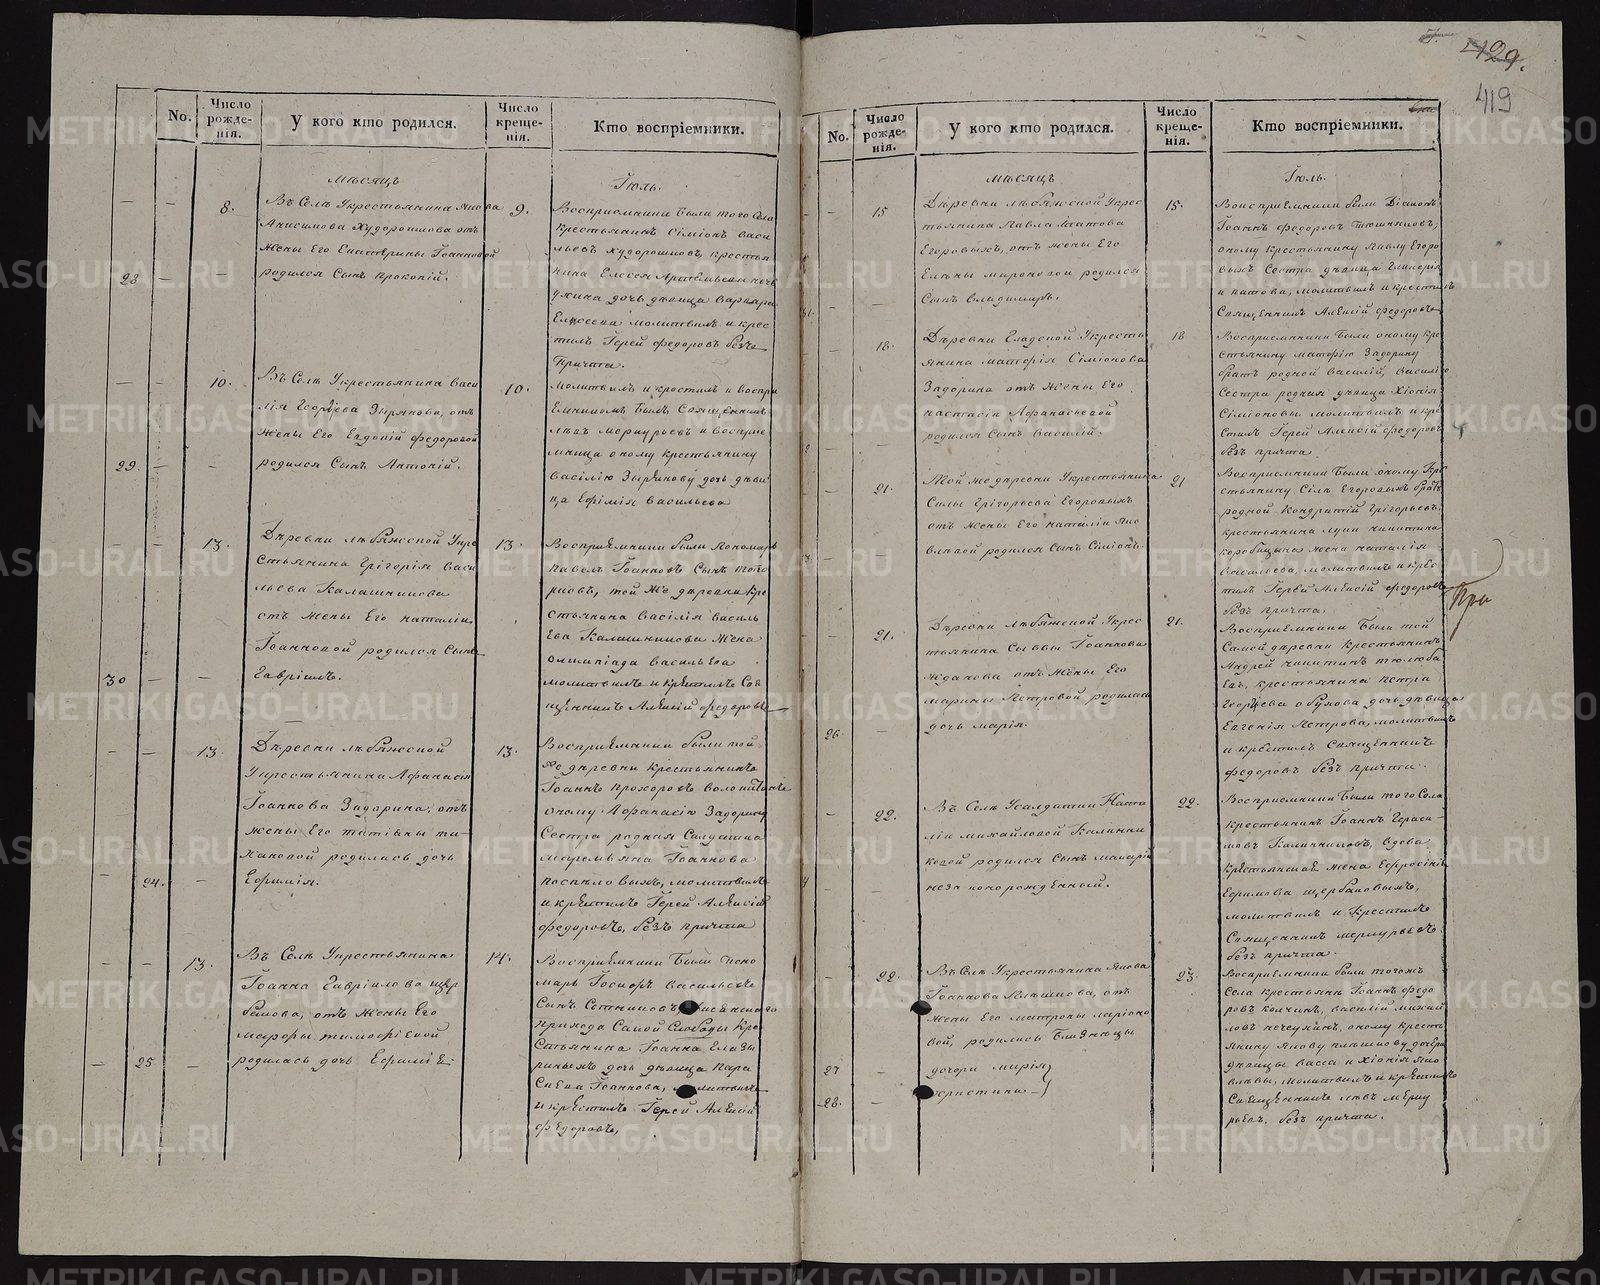 No.
Число рожде-нія.
У кого кто родился.
Число креще-нія.
Кто воспріемники.
мѣсяцъ
Іюль.
28
8.
Въ Селѣ Укрестьянина Якова
Анисимова Худорошкова отъ
жены Его Екатерины Іоанновой
родился Сынъ Прокопій.
9.
Воспріемники были того Села
крестьянинъ Сіміонъ Васи
льевъ Худорошковъ, крестья
нина Елисея Артемьева
дочь дѣвица Варвара
Елисеева молитвилъ и крес
тилъ Іерей Федоровъ безъ
Причта.
29.
10.
Въ Селѣ Укрестьянина Васи
лія Георгіева Зырянова, отъ
жены Его Евдокій Федоровой
родился Сынъ Антоній.
10.
молитвилъ и крестилъ и воспрі
Емникомъ былъ Священникъ
Левъ Меркурьевъ и воспріе
мница оному крестьянину
Василію Зырянову дочь дѣви
ца Ефимія Васильева
30
13.
Деревни Лебяжской Укре
стьянина Григорія Васи
льева Калашникова
отъ жены Его Наталіи
Іоанновой родился Сынъ
Гавріилъ.
13.
Воспріемники были Пономарь
Павелъ Іоанновъ Сынъ Топо
рковъ, той же деревни Кре
стьянина Василія Василь
Ева Калашникова жена
Олимпіада Васильева
молитвилъ и крестилъ Свя
щенникъ Алексій Федоровъ
24.
13.
Деревни Лебяжской
Укрестьянина Афанасія
Іоаннова Задорина, отъ
жены Его Татіаны
родилась дочь
Ефимія.
13.
Воспріемники были той
же деревни крестьянинъ
Іоаннъ Прохоровъ
оному Афанасію Задорину
Сестра родная Салдатка
Маремьяна Іоаннова
Поспѣловыхъ, молитвилъ
и крестилъ Іерей Алексій
Федоровъ, безъ причта
25
13.
Въ Селѣ Укрестьянина
Іоанна Гавріилова Щер
бакова, отъ жены Его
Марфы Тимофіевой
родилась дочь Ефимія
14.
Воспріемники были Поно
марь Іосифъ Васильевъ
Сынъ Сотниковъ
прихода Самой Слободы Кре
стьянина Іоанна Елезы
рьевыхъ дочь дѣвица Пара
скева Іоаннова, молитвилъ
и крестилъ Іерей Алексій
Федоровъ,
429.
419
No.
Число рожде-нія.
У кого кто родился.
Число креще-нія.
Кто воспріемники.
мѣсяцъ
Іюль.
15
Деревни Лебяжской Укрес
тьянина Павла
Егоровыхъ, отъ жены Его
Елены Мироновой родился
Сынъ Владиміръ.
15.
Воспріемники были Діаконъ
Іоаннъ Федоровъ Тюшняковъ,
оному крестьянину Павлу Егоро
выхъ Сестра дѣвица Гликерія
молитвилъ и крестилъ
Священникъ Алексій Федоровъ
18.
Деревни Гладской Укресть
янина Матфія Сіміонова
Задорина отъ жены Его
Настасіи Афанасьевой
родился Сынъ Василій.
18
Воспріемники были оному Кре
стьянину Матфію Задорину
братъ родной Василій, Василіо
Сестра родная дѣвица Хіонія
Сіміоновы молитвилъ и кре
стилъ Іерей Алексій Федоровъ
безъ причта.
21.
Той же деревни Укрестьянина
Силы Григорьева Егоровыхъ
отъ жены Его Наталіи Яко
влевой родился Сынъ Сіміонъ.
21
Воспріемники были оному Кре
стьянину Силѣ Егоровыхъ братъ
родной Кондратій Григорьевъ,
крестьянина Луки Никитина
Коробицына жена Наталія
Васильева, молитвилъ и крес
тилъ Іерей Алексій Федоровъ
безъ причта.
При
26
21.
Деревни Лебяжской Укрес
тьянина Саввы Іоаннова
Жданова отъ жены Его
Марины Петровой родилась
дочь Марія.
21.
Воспріемники были той
самой деревни крестьянинъ
Андрей Никитинъ Тюлюба
Евъ, крестьянина Петра
Георгіева Обухова дочь дѣвица
Евгенія Петрова, молитвилъ
и крестилъ Священникъ
Федоровъ безъ причта.
22.
Въ Селѣ Усалдатки Ната
ліи Михайловой Калинни
ковой родился Сынъ Макарій
незаконорожденный.
22.
Воспріемники были того Села
крестьянинъ Іоаннъ Гераси
мовъ Калинниковъ, вдова
крестьянская жена Ефросинія
Ефимова Щербаковыхъ,
молитвилъ и Крестилъ
Священникъ Меркурьевъ
безъ причта.
27
28.
22.
Въ Селѣ Укрестьянина Якова
Іоаннова Плѣшкова, отъ
жены Его Матроны Ларіоно
вой, родились Близнецы
дочери Марія
Христина
23.
Воспріемники были тогожъ
Села крестьянъ Іоаннъ Федо
ровъ Колчинъ, Василій Михай
ловъ Нечеухинъ, оному кресть
янину Якову Плѣшкову дочери
дѣвицы Васса и Хіонія Яко
влевы, молитвилъ и крестилъ
Священникъ Левъ Мерку
рьевъ, безъ причта.
METRIKI.GASO-URAL.RU